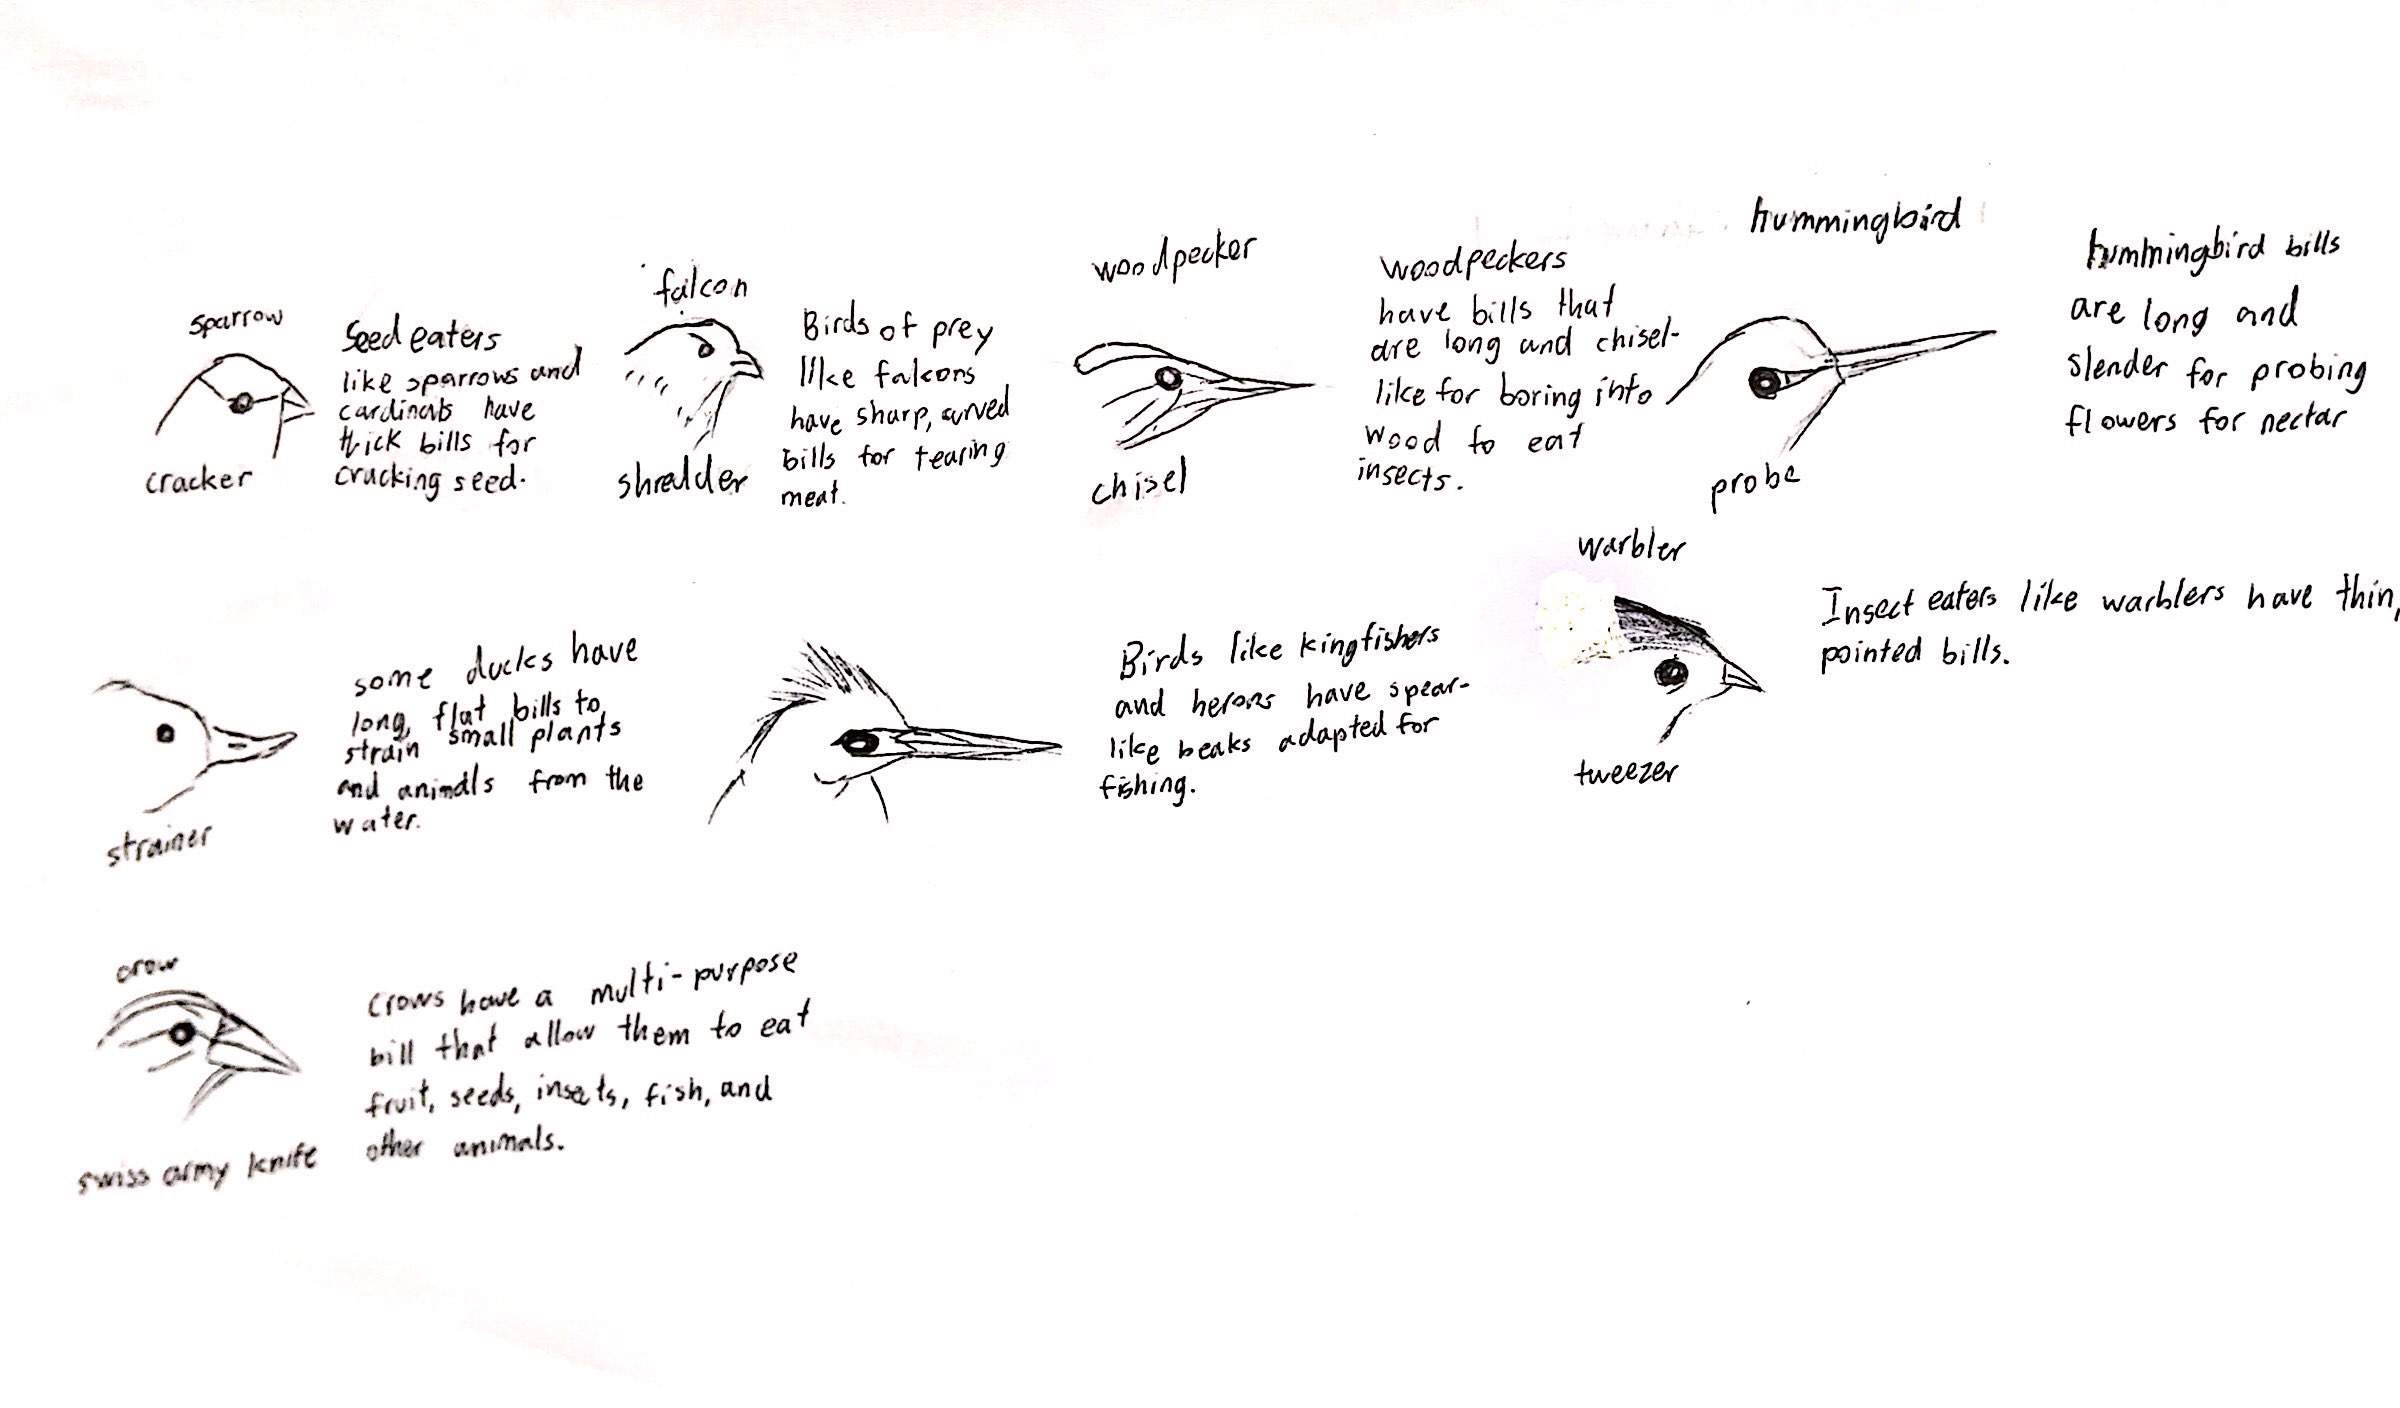 sparrow
Seed eaters
like sparrows and
cardinals have
thick bills for
cracking seed.
cracker
falcon
Birds of prey
like falcons
have sharp, curved
bills for tearing
meat.
shredder
woodpecker
woodpeckers
have bills that
are long and chisel-
like for boring into
wood to eat
insects.
chisel
hummingbird
hummingbird bills
are long and
slender for probing
flowers for nectar
probe
some ducks have
long, flat bills to
strain small plants
and animals from the
water.
strainer
Birds like kingfishers
and herons have spear-
like beaks adapted for
fishing.
warbler
Insect eaters like warblers have thin,
pointed bills.
tweezer
crow
Crows have a multi-purpose
bill that allow them to eat
fruit, seeds, insects, fish, and
other animals.
swiss army knife